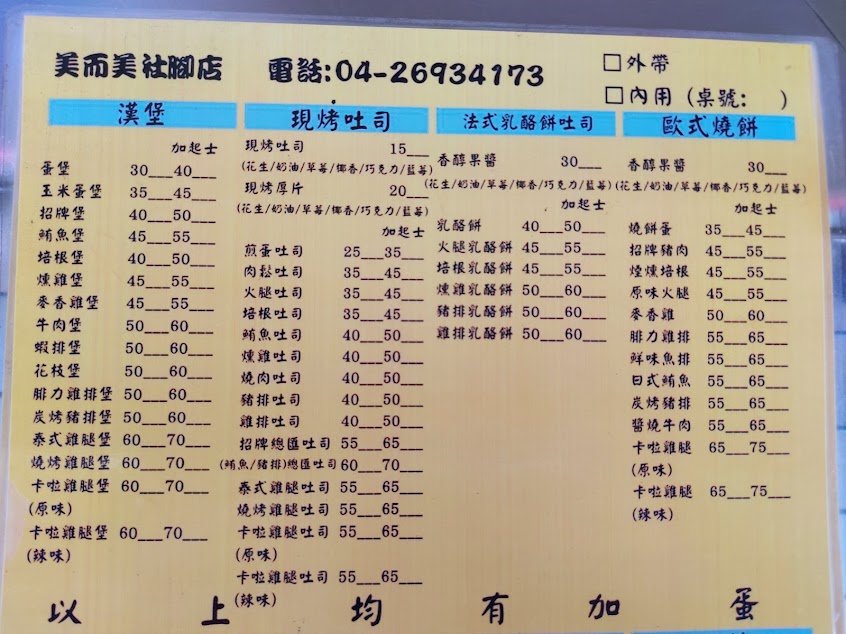 美而美社腳店 電話:04-26934173
□外帶
□內用 (桌號: )
漢堡
加起士
蛋堡 30___40___
玉米蛋堡 35___45___
招牌堡 40___50___
鮪魚堡 45___55___
培根堡 40___50___
燻雞堡 45___55___
麥香雞堡 45___55___
牛肉堡 50___60___
蝦排堡 50___60___
花枝堡 50___60___
腓力雞排堡 50___60___
炭烤豬排堡 50___60___
泰式雞腿堡 60___70___
燒烤雞腿堡 60___70___
卡啦雞腿堡 60___70___
(原味)
卡啦雞腿堡 60___70___
(辣味)
現烤吐司
現烤吐司 15___
(花生/奶油/草莓/椰香/巧克力/藍莓)
現烤厚片 20___
(花生/奶油/草莓/椰香/巧克力/藍莓)
加起士
煎蛋吐司 25___35___
肉鬆吐司 35___45___
火腿吐司 35___45___
培根吐司 35___45___
鮪魚吐司 40___50___
燻雞吐司 40___50___
燒肉吐司 40___50___
豬排吐司 40___50___
雞排吐司 40___50___
招牌總匯吐司 55___65___
(鮪魚/豬排)總匯吐司 60___70___
泰式雞腿吐司 55___65___
燒烤雞腿吐司 55___65___
卡啦雞腿吐司 55___65___
(原味)
卡啦雞腿吐司 55___65___
(辣味)
法式乳酪餅吐司
香醇果醬 30___
(花生/奶油/草莓/椰香/巧克力/藍莓)
加起士
乳酪餅 40___50___
火腿乳酪餅 45___55___
培根乳酪餅 45___55___
燻雞乳酪餅 50___60___
豬排乳酪餅 50___60___
雞排乳酪餅 50___60___
歐式燒餅
香醇果醬 30___
(花生/奶油/草莓/椰香/巧克力/藍莓)
加起士
燒餅蛋 35___45___
招牌豬肉 45___55___
煙燻培根 45___55___
原味火腿 45___55___
麥香雞 50___60___
腓力雞排 55___65___
鮮味魚排 55___65___
日式鮪魚 55___65___
炭烤豬排 55___65___
醬燒牛肉 55___65___
卡啦雞腿 65___75___
(原味)
卡啦雞腿 65___75___
(辣味)
以上均有加蛋